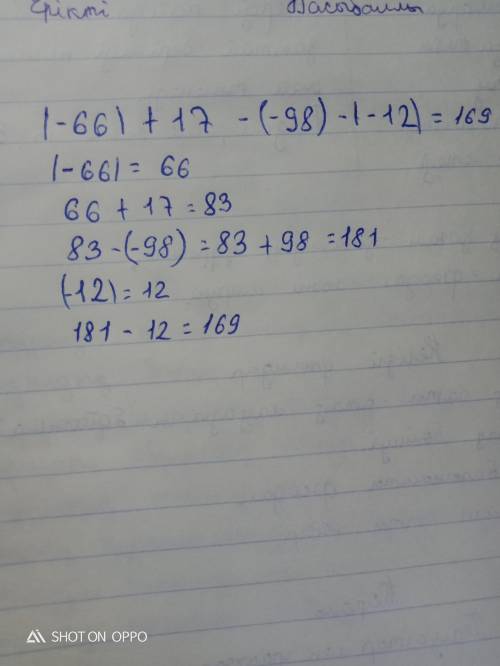 |-66| + 17 - (-98) - |-12| = 169
|-66| = 66
66 + 17 = 83
83 - (-98) = 83 + 98 = 181
(-12) = 12
181 - 12 = 169
SHOT ON OPPO